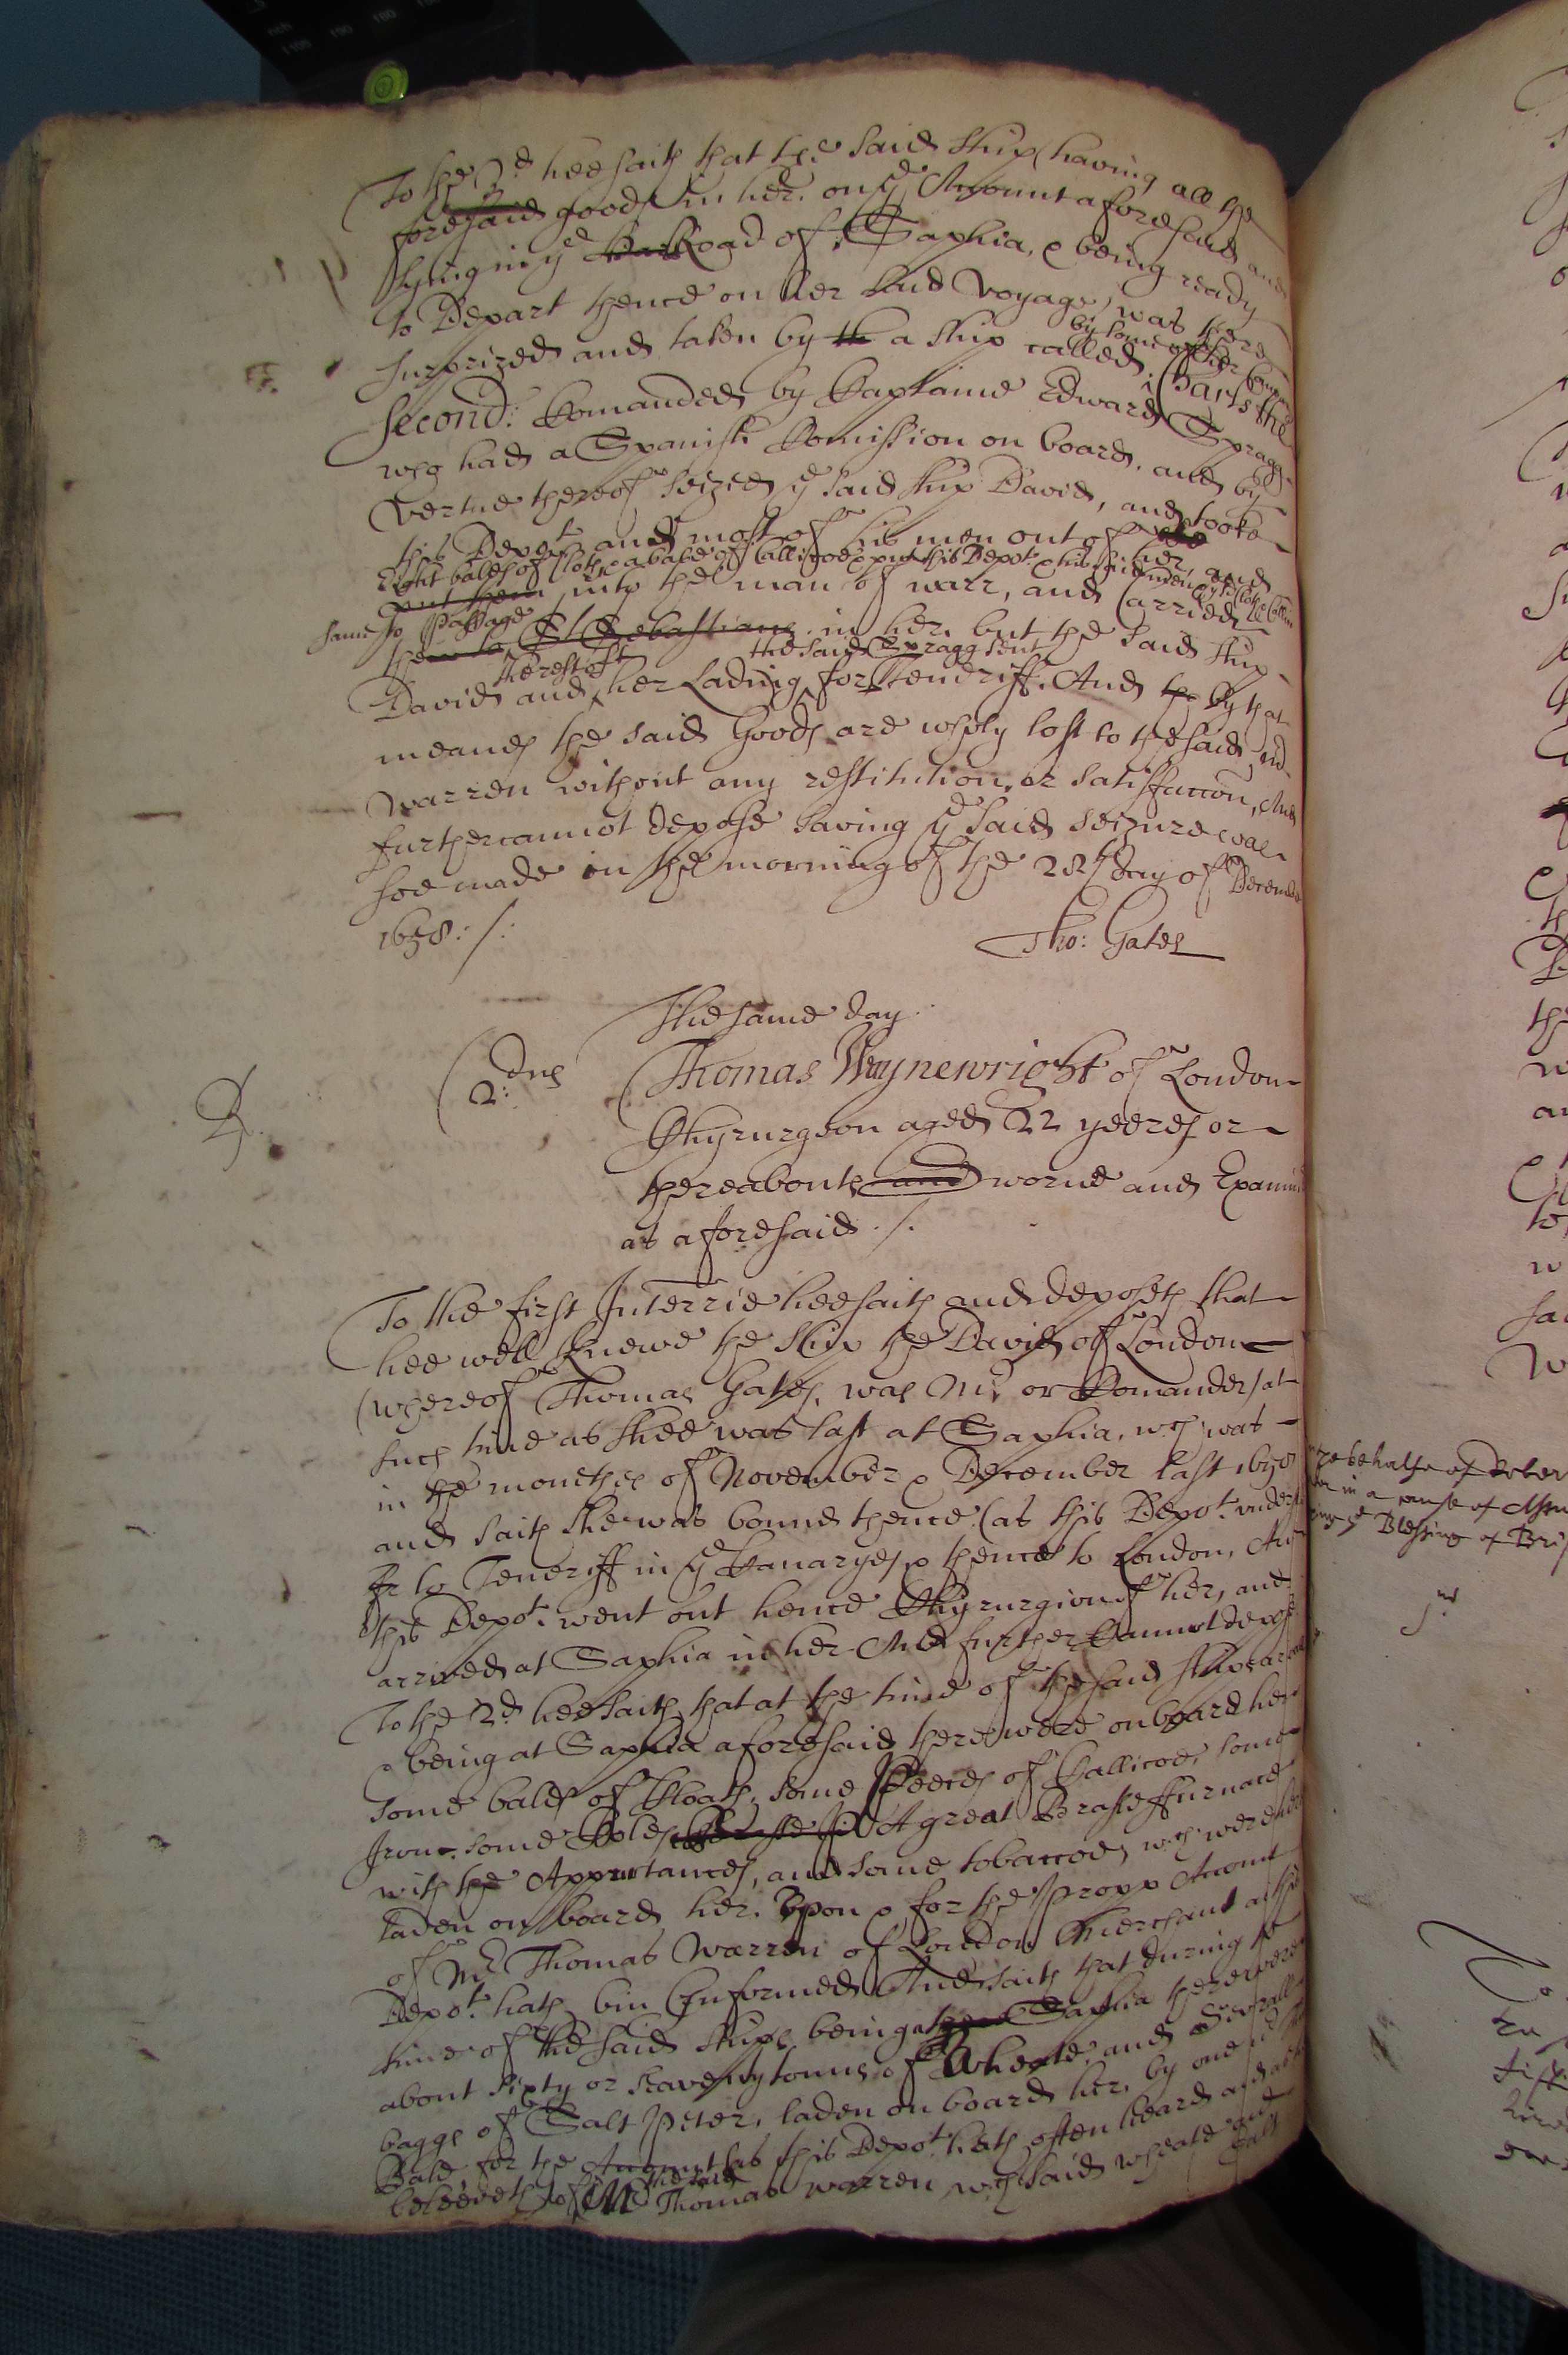 To the 3d hee saith that the said ship (having all the
foresaid goods in her, on ye Account aforesaid and
lying in ye Road of Saphia, & being ready
to Depart thence on her said voyage, was there
surprized and taken by th a ship called by some of her Company Charls the
Second: Comanded by Captaine Edward Spragg
who had a Spanish Comission on board, and by
vertue thereof seized ye said ship David, and tooke
this Depot and most of his men out of her, and
Eight bales of Cloth, & a bale of Callicoe & put this Depot & his said men & ye said Cloth & Callicoe
put them into the man of warr, and Carried
same to Passage
them to St Sebastians in her, but the said ship
David and the rest of her Lading the said Spragg sent for Tenariff. And by that
meanes the said Goods are wholy lost to the said Mr
Warren without any restitution, or satisfaccon, And
further cannot depose saving ye said seizure was
soe made in the morning of the 28th day of December
1658: /.
Tho: Gates
The same day.
2: dus
Thomas Waynewright of London
Chyrurgeon aged 22 yeeres or
thereabouts and sworne and Examined
as aforesaid ./.
To the first Interrie hee saith and deposeth that
hee well knewe the ship the David of London
(whereof Thomas Gates, was Mr or Comander) at
such time as shee was last at Saphia, wch was
in the monethes of November & December last 1658
and saith she was bound thence (as this Depot
to Teneriff in ye Canaryes & thence to London, And
this Depot went out hence Chyrurgion of her, and
arrived at Saphia in her And further Cannot depose
To the 2d hee saith that at the time of the said ships
& being at Saphia aforesaid there were on board her
some bales of Cloath, some Peeces of Callicoe, some
Iron, some A great Brasse ffurnace
with the Appurtances, and some tobaccoe, wch were
laden on board her, Upon & for the Propp Accomt
of Mr Thomas Warren of London Merchant as this
Depot hath bin Enformed And saith that during the
time of the said ships being at Saphia there were
about sixty or seaventy tonns of Wheate, and severall
baggs of Salt Peter, laden on board her, by one
for the Accomt (as this Depot hath often heard and
beleeveth) of the said Mr Thomas Warren, wch said wheate and
Salt
behalfe of
in a cause of
ye Blessing of